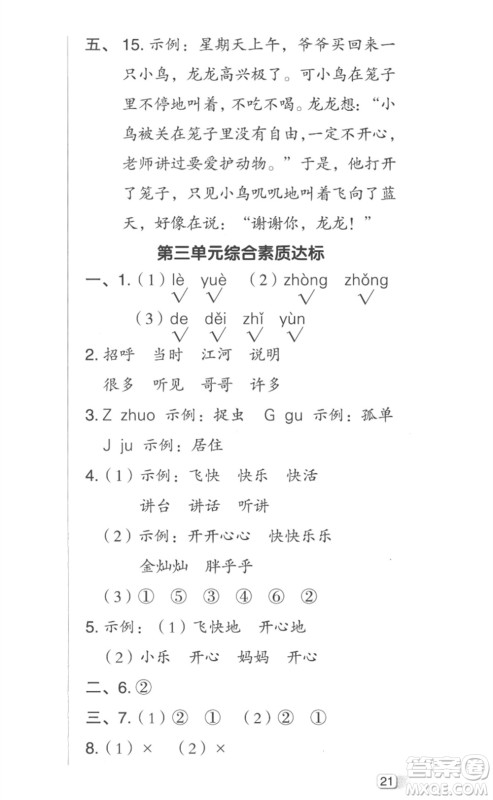 五、15. 示例：星期天上午，爷爷买回来一
只小鸟，龙龙高兴极了。可小鸟在笼子
里不停地叫着，不吃不喝。龙龙想：“小
鸟被关在笼子里没有自由，一定不开心，
老师讲过要爱护动物。”于是，他打开
了笼子，只见小鸟叽叽地叫着飞向了蓝
天，好像在说：“谢谢你，龙龙！”
第三单元综合素质达标
一、1.（1）lè yuè （2）zhòng zhǒng
√ √
（3）de děi zhǐ yùn
√ √
2. 招呼 当时 江河 说明
很多 听见 哥哥 许多
3. Z zhuo 示例：捉虫 G gu 示例：孤单
J ju 示例：居住
4.（1）示例：飞快 快乐 快活
讲台 讲话 听讲
（2）示例：开开心心 快快乐乐
金灿灿 胖乎乎
（3）① ⑤ ② ④ ⑥ ③
5. 示例：（1）飞快地 开心地
（2）小乐 开心 妈妈 开心
二、6. ②
三、7.（1）② ① （2）② ①
8.（1）× （2）×
21
答案圈
MXQE.COM